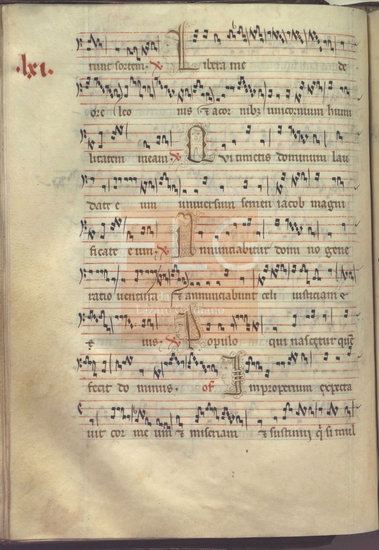 .lxi.
runt sortem. Libera me de
ore leo nis et a cor nibus unicornium humi
litatem meam. Qui timetis dominum lau
date e um universum semen iacob magni
ficate e um. Annunciabitur domino gene
ratio ventura et annunciabunt celi iusticiam e
ius. Populo qui nascetur quem
fecit do minus. of Improperium expecta
vit cor me um et miseriam et sustinui qui simul